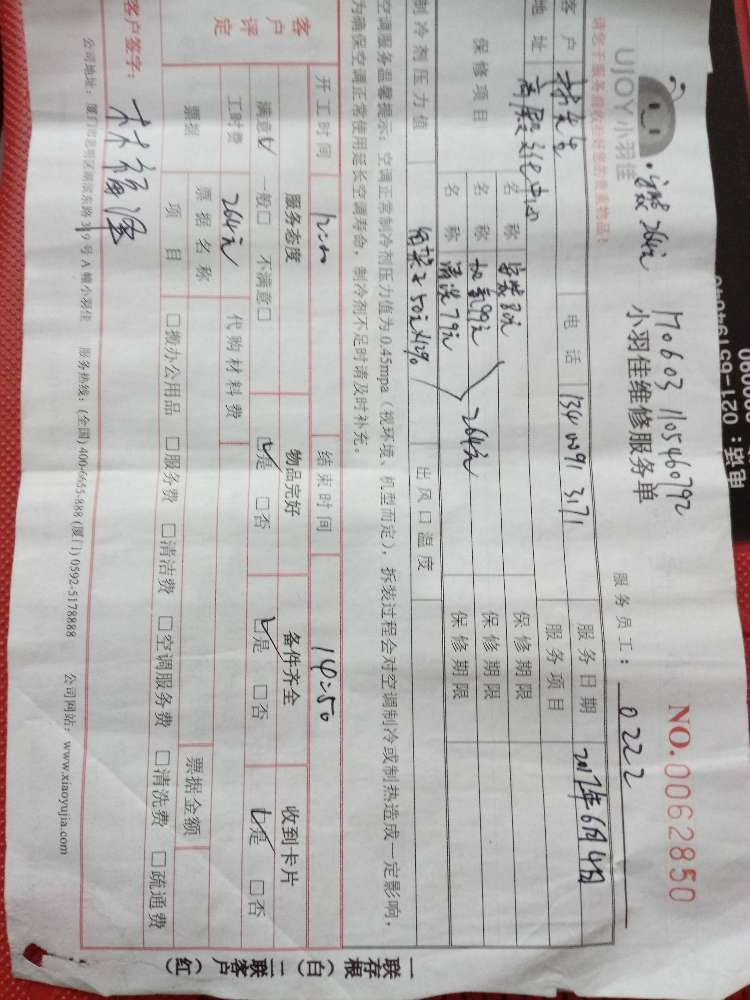 请您于服务前收拾好您的贵重物品!
UJOY小羽佳
170603 1105460792
小羽佳维修服务单
NO.0062850
服务员工: 0222
客户 林先生 电话 134 0091 3171 服务日期 2017年6月4日
地址 服务项目
保修项目 名称 安装 保修期限
名称 加氟99元 264元 保修期限
名称 清洗79元 保修期限
制冷剂压力值 出风口温度
空调服务温馨提示: 空调正常制冷剂压力值为0.45mpa (视环境、机型而定), 拆装过程会对空调制冷或制热造成一定影响,
为确保空调正常使用延长空调寿命, 制冷剂不足时请及时补充。
开工时间 结束时间 14:50
客户评定 服务态度 物品完好 备件齐全 收到卡片
满意 一般 不满意 是 否 是 否 是 否
工时费 264元 代购材料费
票据 票据名称 票据金额
项目 搬办公用品 服务费 清洁费 空调服务费 清洗费 疏通费
客户签字: 林福泽
公司地址: 厦门市思明区湖滨东路319号A幢小羽佳 服务热线: (全国) 400-6655-888 (厦门) 0592-5178888 公司网站: www.xiaoyujia.com
一联存根(白) 二联客户(红)